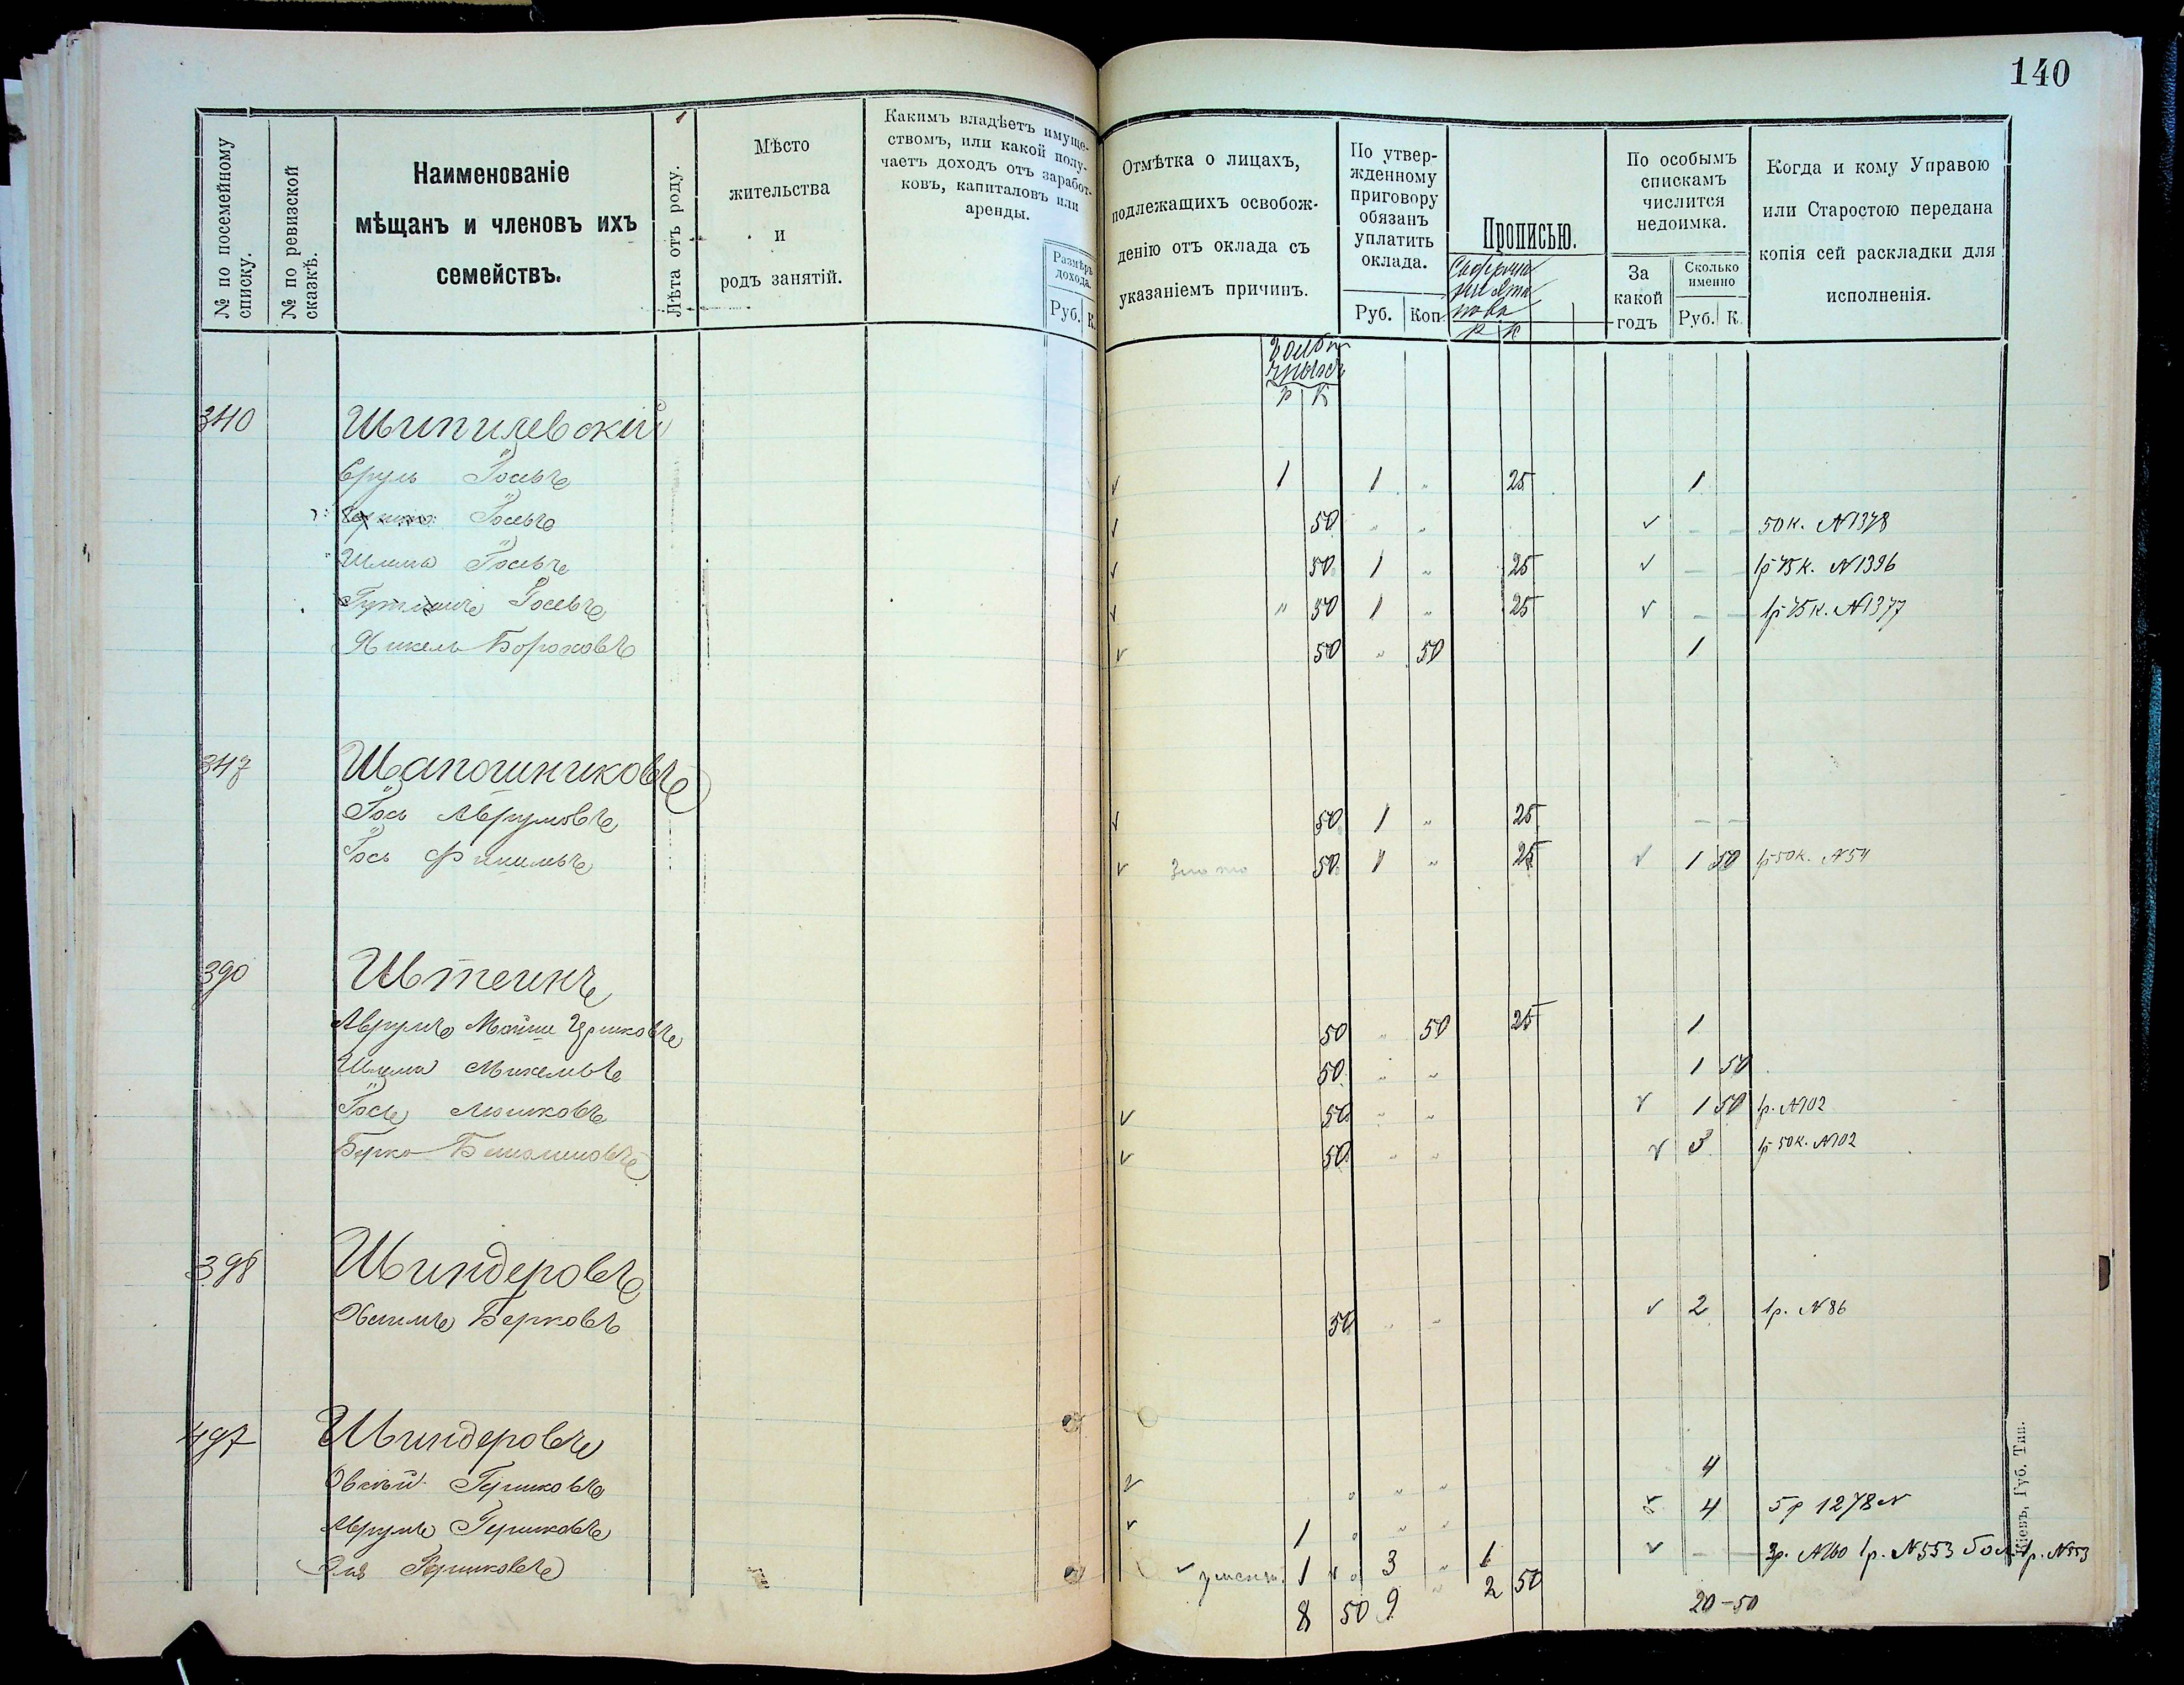 140
№ по посемейному списку.
№ по ревизской сказкѣ.
Наименованіе
мѣщанъ и членовъ ихъ
семействъ.
Лѣта отъ роду.
Мѣсто
жительства
и
родъ занятій.
Какимъ владѣетъ имуще-
ствомъ, или какой полу-
чаетъ доходъ отъ заработ-
ковъ, капиталовъ или
аренды.
Размѣръ
дохода.
Руб. К.
Отмѣтка о лицахъ,
подлежащихъ освобож-
денію отъ оклада съ
указаніемъ причинъ.
По утвер-
жденному
приговору
обязанъ
уплатить
оклада.
Руб. Коп.
Прописью.
Р К
По особымъ
спискамъ
числится
недоимка.
За
какой
годъ
Сколько
именно
Руб. К.
Когда и кому Управою
или Старостою передана
копія сей раскладки для
исполненія.
Р К
340 Шипилевскій
Сруль Іосевъ 1 1 " 25 1
Іосевъ 50 " " 50 к. №1378
Шлема Іосевъ 50 1 " 25 1р 75 к. №1396
Гутманъ Іосевъ " 50 1 " 25 1р 75 к. №1377
Янкель Бороховъ 50 " 50 1
347 Шапошниковъ
Іось Аврумовъ 50 1 " 25
Іось 50 1 " 25 1 50 1р 50 к. №54
390 Штеинъ
Аврумъ Мойше Гершковъ 50 " 50 25 1
Шлема Михелевъ 50 " " 1 50
Іось Мошковъ 50 " " 1 50 1р. №102
Берко 50 " " 3 1р 50 к. №102
398 Шиндеровъ
Хаимъ Берковъ 50 " " 2 1р. №86
497 Шиндеровъ
Овсѣй Гершковъ " " " 4
Аврумъ Гершковъ 1 " " " 4 5р 1278 №
Эля Гершковъ 1 " 3 " 1 3р. №160 1р. №553 1р. №553
8 50 9 " 2 50 20-50
Кіевъ, Губ. Тип.